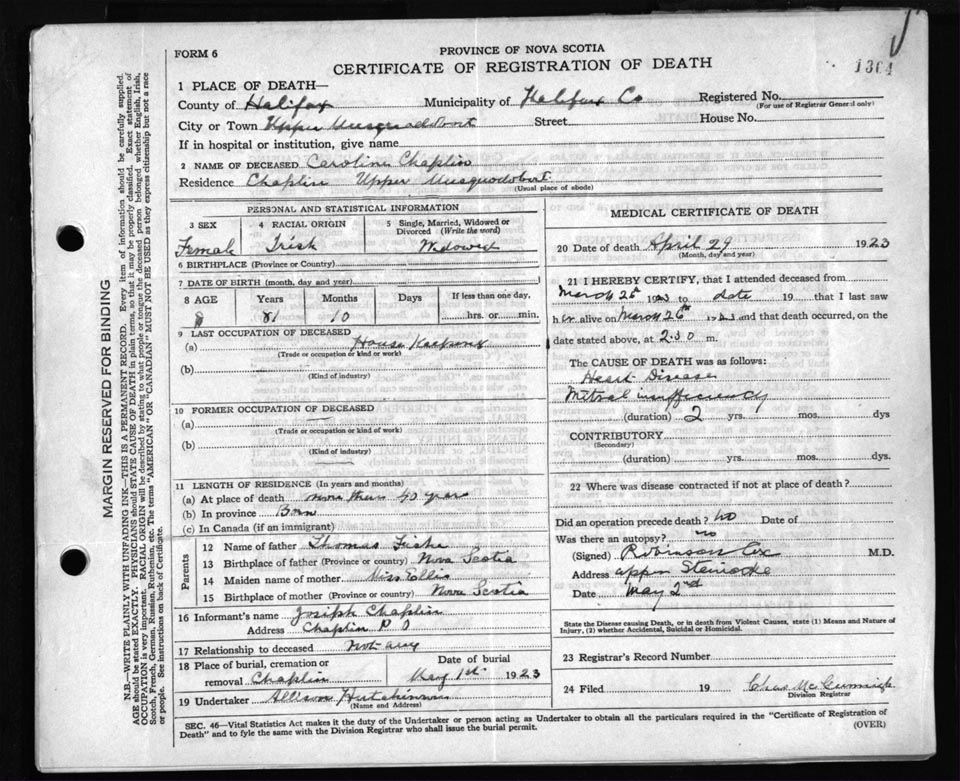 PROVINCE OF NOVA SCOTIA
FORM 6
CERTIFICATE OF REGISTRATION OF DEATH
1364
1 PLACE OF DEATH—
County of Halifax Municipality of Halifax Co Registered No.
(For use of Registrar General only)
City or Town Upper Musquodoboit Street House No.
If in hospital or institution, give name
2 NAME OF DECEASED Caroline Chaplin
Residence Chaplin Upper Musquodoboit
(Usual place of abode)
PERSONAL AND STATISTICAL INFORMATION
3 SEX 4 RACIAL ORIGIN 5 Single, Married, Widowed or Divorced (Write the word)
Female Irish Widowed
6 BIRTHPLACE (Province or Country)
7 DATE OF BIRTH (month, day and year)
8 AGE Years Months Days If less than one day,
81 10 hrs. or min.
9 LAST OCCUPATION OF DECEASED
(a) House Keeping
(Trade or occupation or kind or work)
(b)
(Kind of industry)
10 FORMER OCCUPATION OF DECEASED
(a)
(Trade or occupation or kind of work)
(b)
(Kind of industry)
11 LENGTH OF RESIDENCE (In years and months)
(a) At place of death more than 40 years
(b) In province Born
(c) In Canada (if an immigrant)
Parents
12 Name of father Thomas
13 Birthplace of father (Province or country) Nova Scotia
14 Maiden name of mother Miss
15 Birthplace of mother (Province or country) Nova Scotia
16 Informant's name Josiph Chaplin
Address Chaplin P O
17 Relationship to deceased not any
18 Place of burial, cremation or removal Chaplin
Date of burial May 1st 1923
19 Undertaker Allison Hutchinson
(Name and Address)
MEDICAL CERTIFICATE OF DEATH
20 Date of death April 29 1923
(Month, day and year)
21 I HEREBY CERTIFY, that I attended deceased from
March 25th 1923 to date 19 that I last saw
her alive on March 26th 1923 and that death occurred, on the
date stated above, at 2:30 m.
The CAUSE OF DEATH was as follows:
Heart Disease
Mitral insufficiency
(duration) 2 yrs. mos. dys
CONTRIBUTORY
(Secondary)
(duration) yrs. mos. dys.
22 Where was disease contracted if not at place of death?
Did an operation precede death? no Date of
Was there an autopsy? no
(Signed) Robinson Cox M.D.
Address Upper Stewiacke
Date May 2nd
State the Disease causing Death, or in death from Violent Causes, state (1) Means and Nature of
Injury, (2) whether Accidental, Suicidal or Homicidal.
23 Registrar's Record Number
24 Filed 19
Division Registrar
SEC. 46—Vital Statistics Act makes it the duty of the Undertaker or person acting as Undertaker to obtain all the particulars required in the "Certificate of Registration of
Death" and to fyle the same with the Division Registrar who shall issue the burial permit. (OVER)
MARGIN RESERVED FOR BINDING
N.B.—WRITE PLAINLY WITH UNFADING INK—THIS IS A PERMANENT RECORD. Every item of information should be carefully supplied.
AGE should be stated EXACTLY. PHYSICIANS should STATE CAUSE OF DEATH in plain terms, so that it may be properly classified. Exact statement of
OCCUPATION is very important. RACIAL ORIGIN will be described by stating to what people or tongue the deceased person belonged whether English, Irish,
Scotch, French, German, Russian, Ruthenian, etc. The terms "AMERICAN" OR "CANADIAN" MUST NOT BE USED as they express citizenship but not a race
or people. See instructions on back of Certificate.